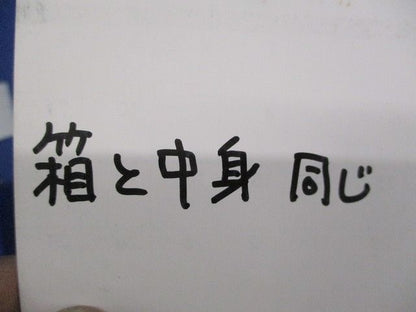 箱と中身 同じ